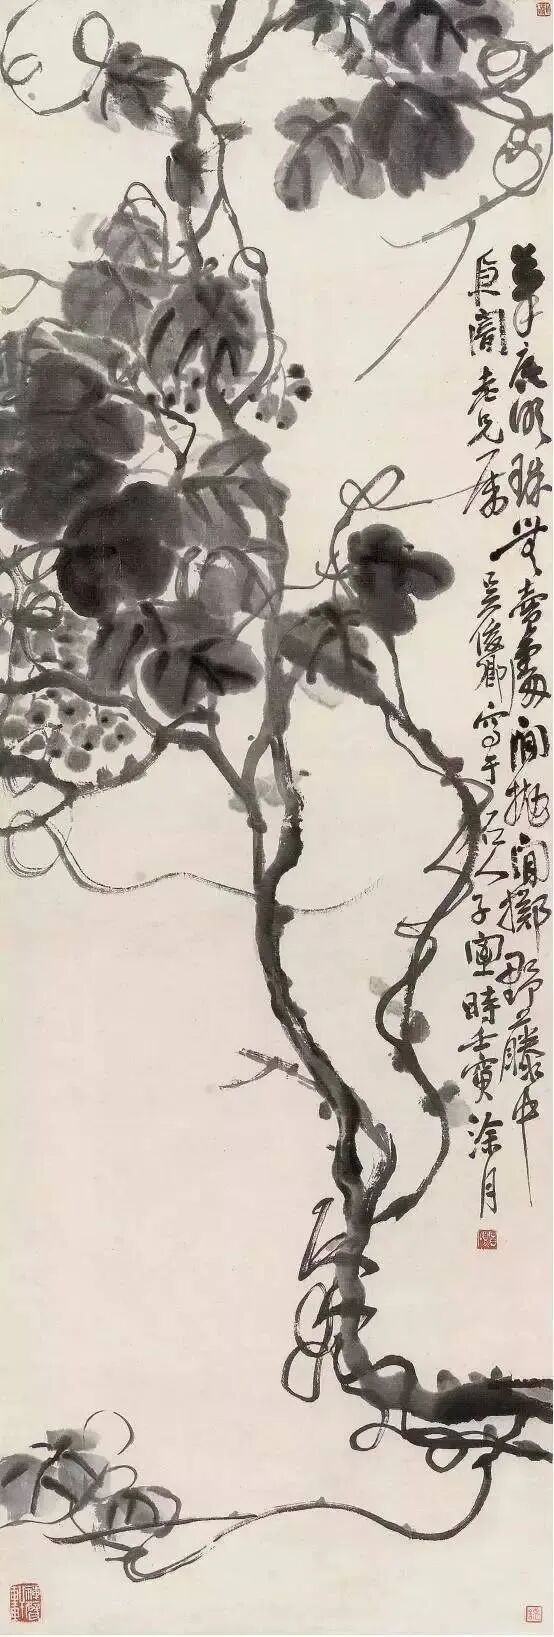 筆底明珠無賣處閒拋閒擲野藤中
臾闇老兄屬
吳俊卿寫于石人子室時壬寅涂月